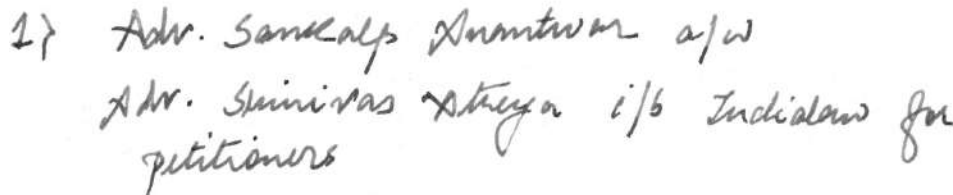 1) Adv. Sankalp Anantwar a/w
Adv. Srinivas Atreya i/b Indialaw for
petitioners